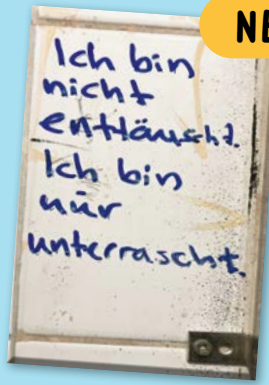 NE
Ich bin
nicht
enttäuscht.
Ich bin
nur
unterrascht.